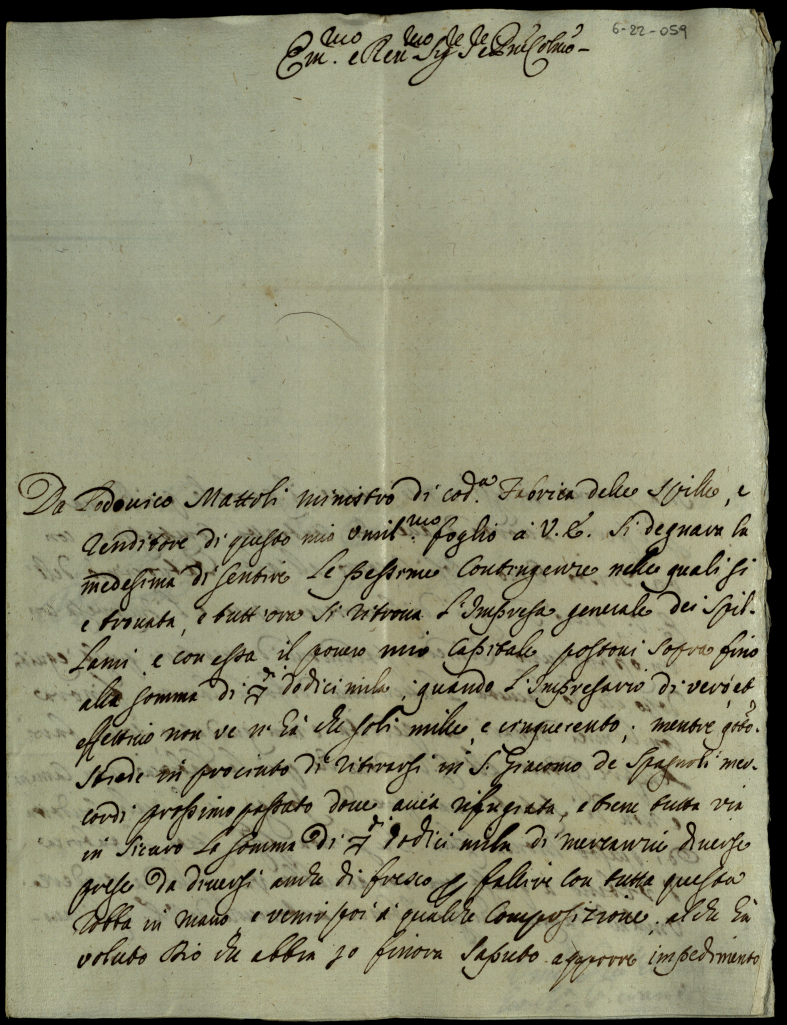 6-22-059
Em.mo e Rev.mo Sig.re Sig.re Pne Colmo
Da Lodovico Mattoli ministro di cod.a Fabrica delle Spille, e
Venditore di questo mio umil.mo foglio à V. E. si degnarà la
medesima di sentire le pessime contingenze nelle quali si
e trovata, e tutt'ora si ritrova l'Impresa generale dei Spil-
lami, e con essa il povero mio Capitale postovi sopra fino
alla somma di dodici mila; quando l'Impresario di vero, et
effettivo non ve n'hà che soli mille, e cinquecento; mentre
stiede in procinto di ritirarsi in S. Giacomo de Spagnoli mer-
cordi prossimo passato dove avea rifugiata, e tiene tutta via
in sicuro la somma di dodici mila di mercanzie diverse
prese da diversi anche di fresco p fallire con tutta questa
robba in mano, e venir poi à qualche composizione, al che hà
voluto Dio che abbia io finora saputo apporre impedimento